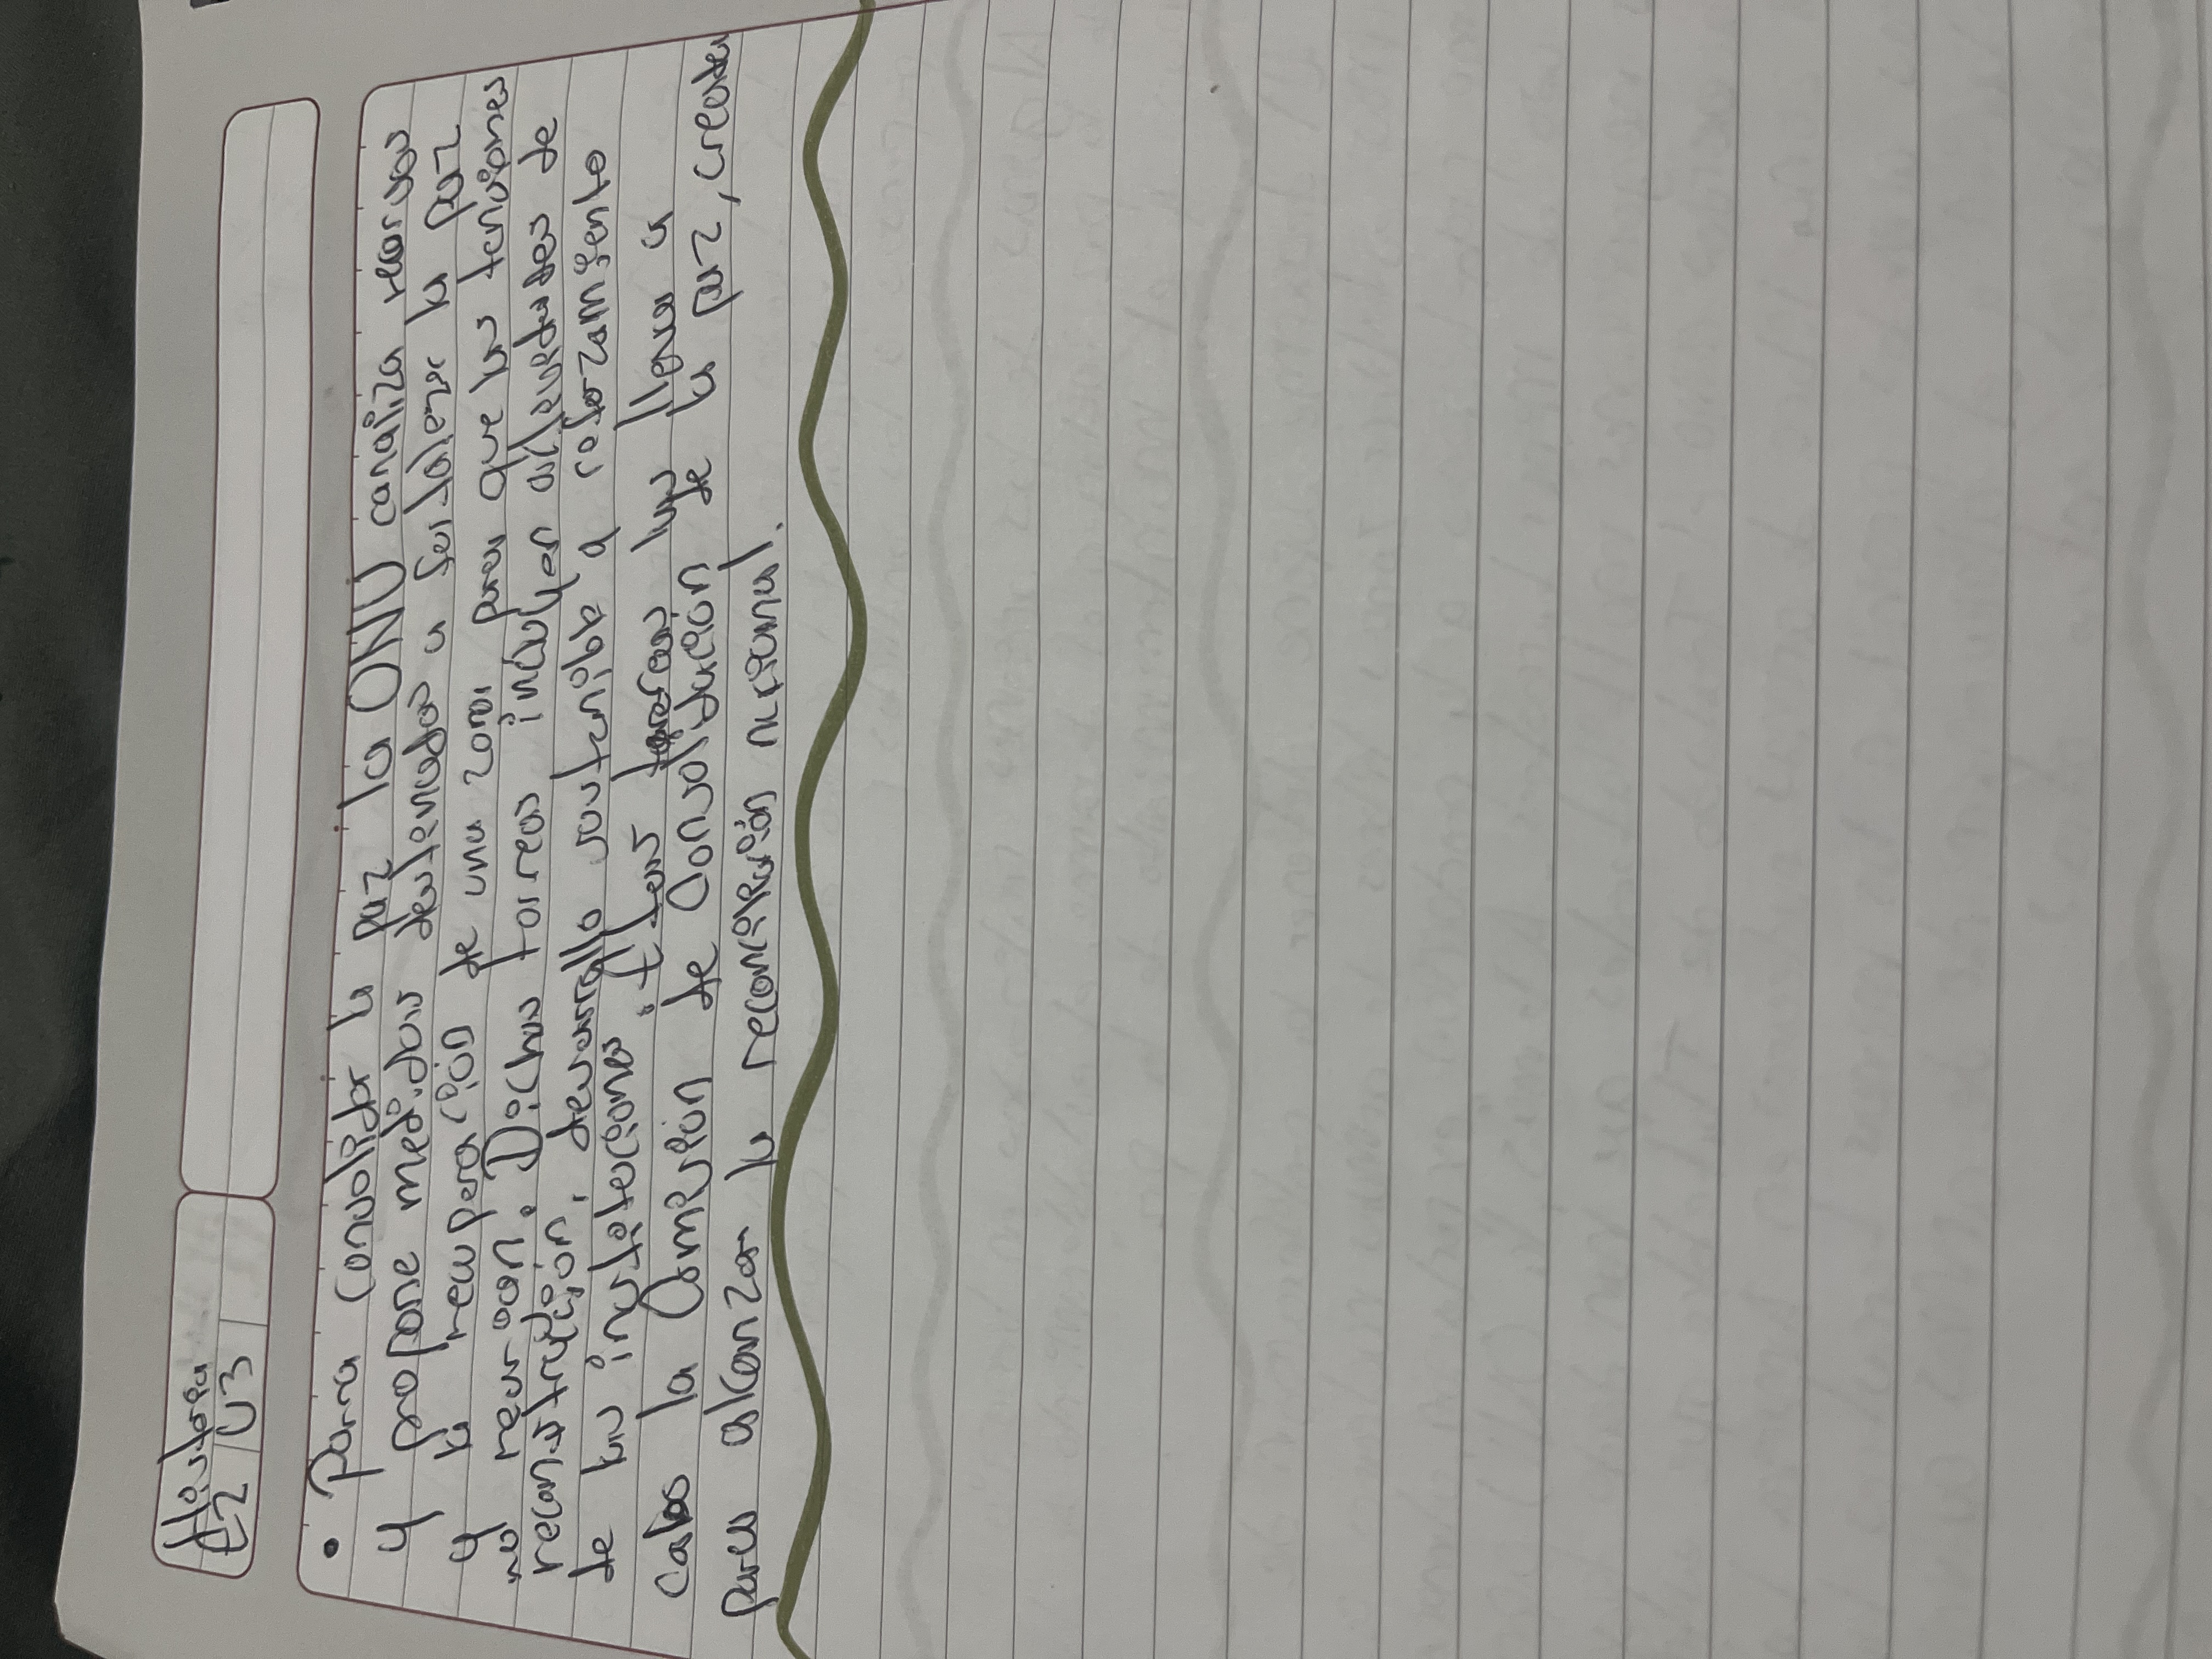 Historia
E2 U3
• Para consolidar la paz la ONU canaliza recursos
y propone medidas destinadas a fortalecer la paz
y la recuperación de una zona para que las tensiones
no resurjan. Dichas tareas incluyen actividades de
reconstrucción, desarrollo sostenible y reforzamiento
de las instituciones. Estas tareas las lleva a
cabo la Comisión de Consolidación de la paz, creada
para alcanzar la reconciliación nacional.